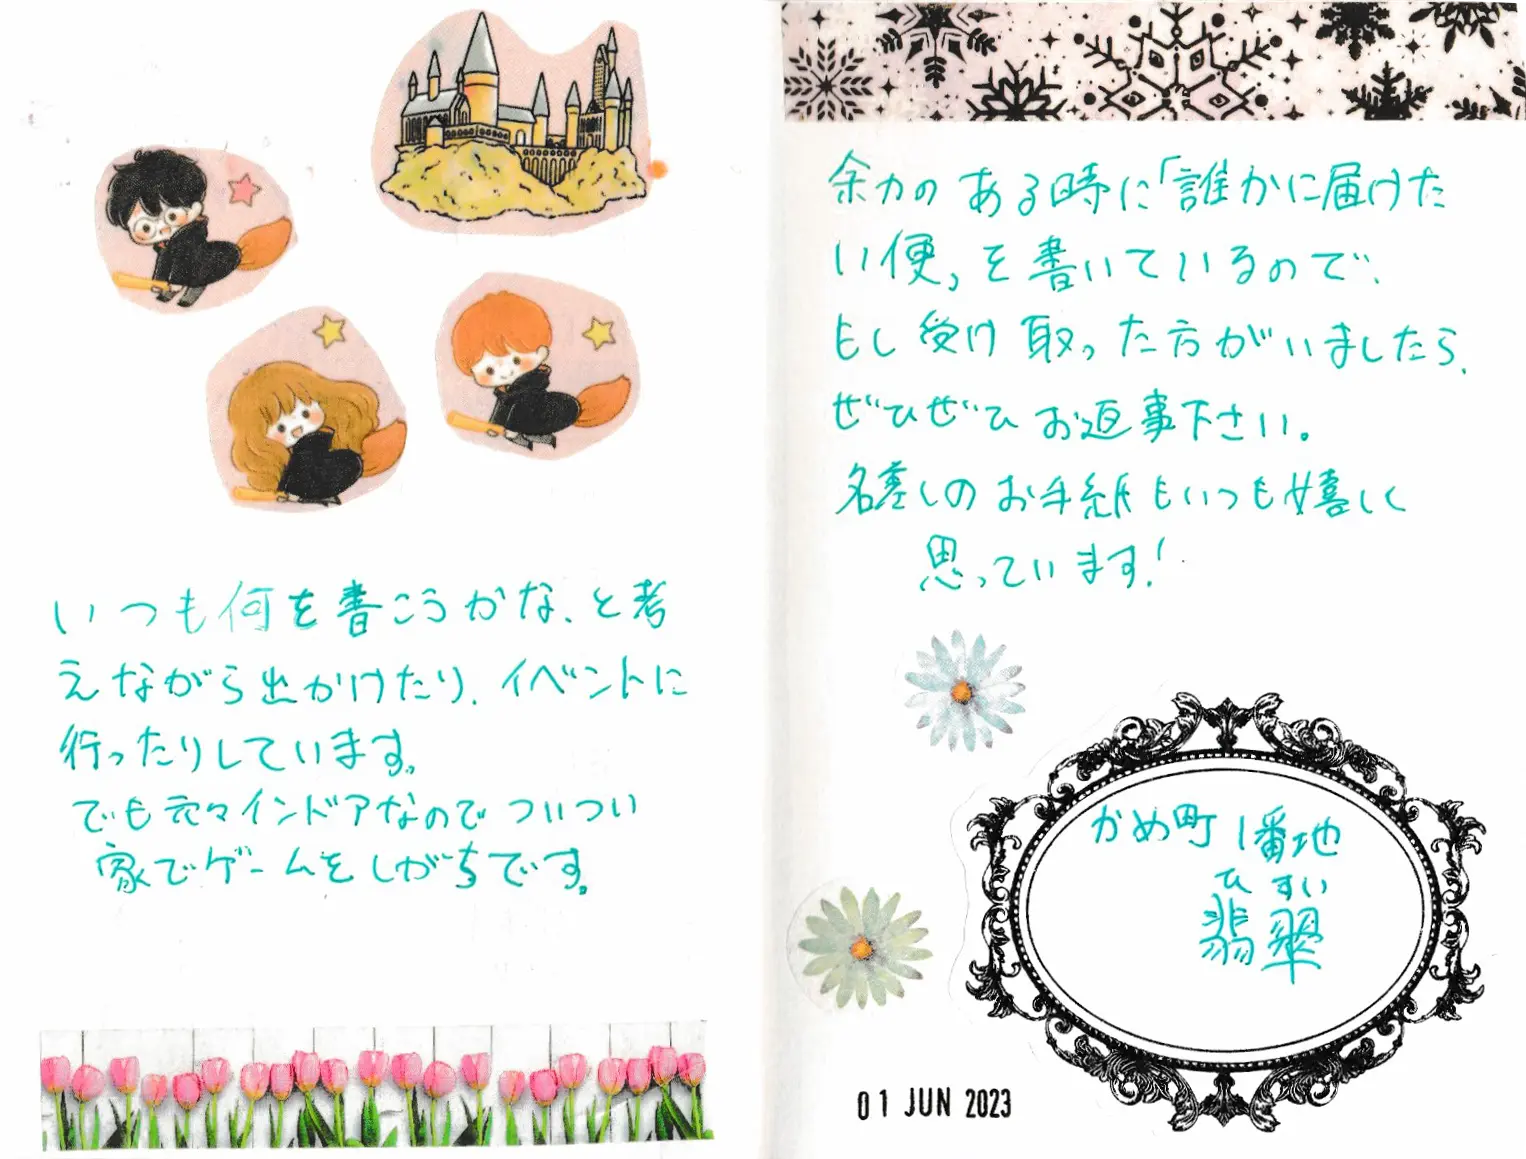 いつも何を書こうかな、と考
えながら出かけたり、イベントに
行ったりしています。
でも元々インドアなのでついつい
家でゲームをしがちです。
余力のある時に「誰かに届けた
い便」を書いているので、
もし受け取った方がいましたら、
ぜひぜひお返事下さい。
名差しのお手紙もいつも嬉しく
思っています!
かめ町1番地
ひすい
翡翠
01 JUN 2023